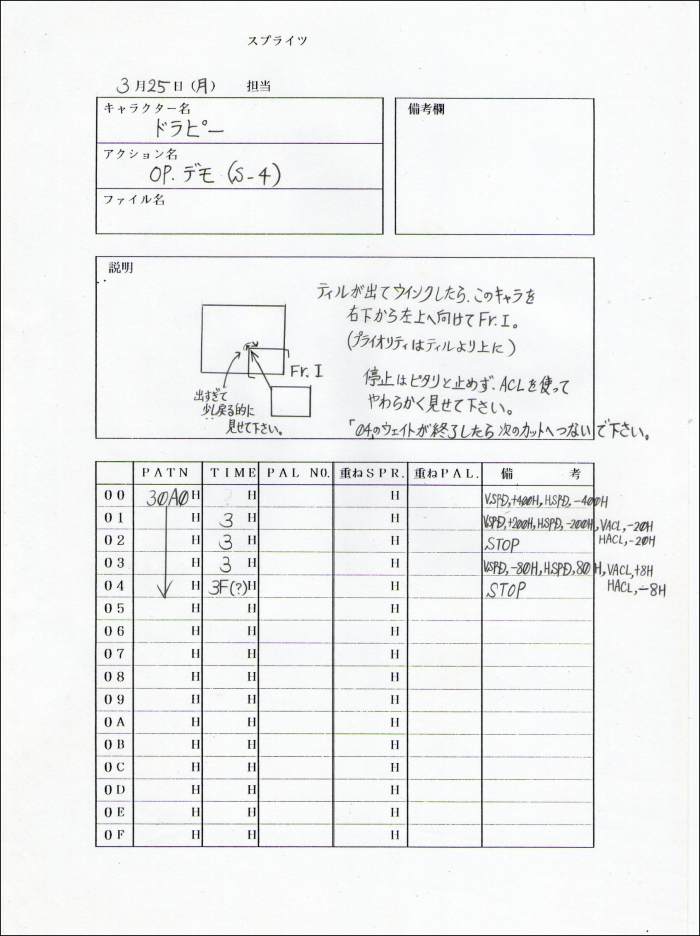 スプライツ
3月25日(月) 担当
キャラクター名
ドラピー
アクション名
OP. デモ (S-4)
ファイル名
備考欄
説明
ティルが出てウインクしたら、このキャラを
右下から左上へ向けてFr.I。
(プライオリティはティルより上に)
Fr.I
出すぎて
少し戻る的に
見せて下さい。
停止はピタリと止めず、ACLを使って
やわらかく見せて下さい。
「04」のウェイトが終了したら次のカットへつないで下さい。
PATN TIME PAL NO. 重ねSPR. 重ねPAL. 備 考
00 30A0H H H V.SPD,+400H,H.SPD,-400H
01 H 3 H H V.SPD,+200H,H.SPD,-200H,VACL,-20H
HACL,-20H
02 H 3 H H STOP
03 H 3 H H V.SPD,-80H,H.SPD,80H,VACL,+8H
HACL,-8H
04 H 3F(?)H H STOP
05 H H H
06 H H H
07 H H H
08 H H H
09 H H H
0A H H H
0B H H H
0C H H H
0D H H H
0E H H H
0F H H H